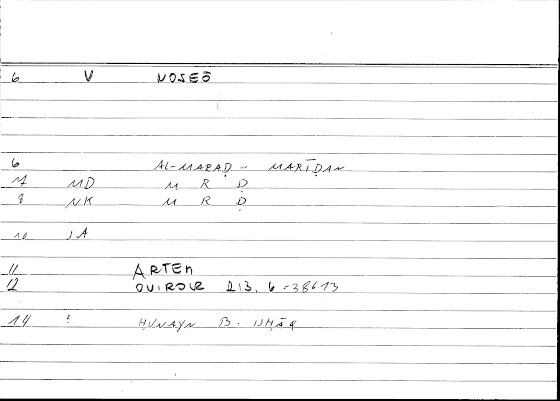 6 V NOSEŌ
6 AL-MARAḌ - MARĪḌAN
7 MD M R Ḍ
8 NK M R Ḍ
10 JA
11 ARTEM
12 213, 6-38613
14 ? ḤUNAYN B. ISḤĀQ